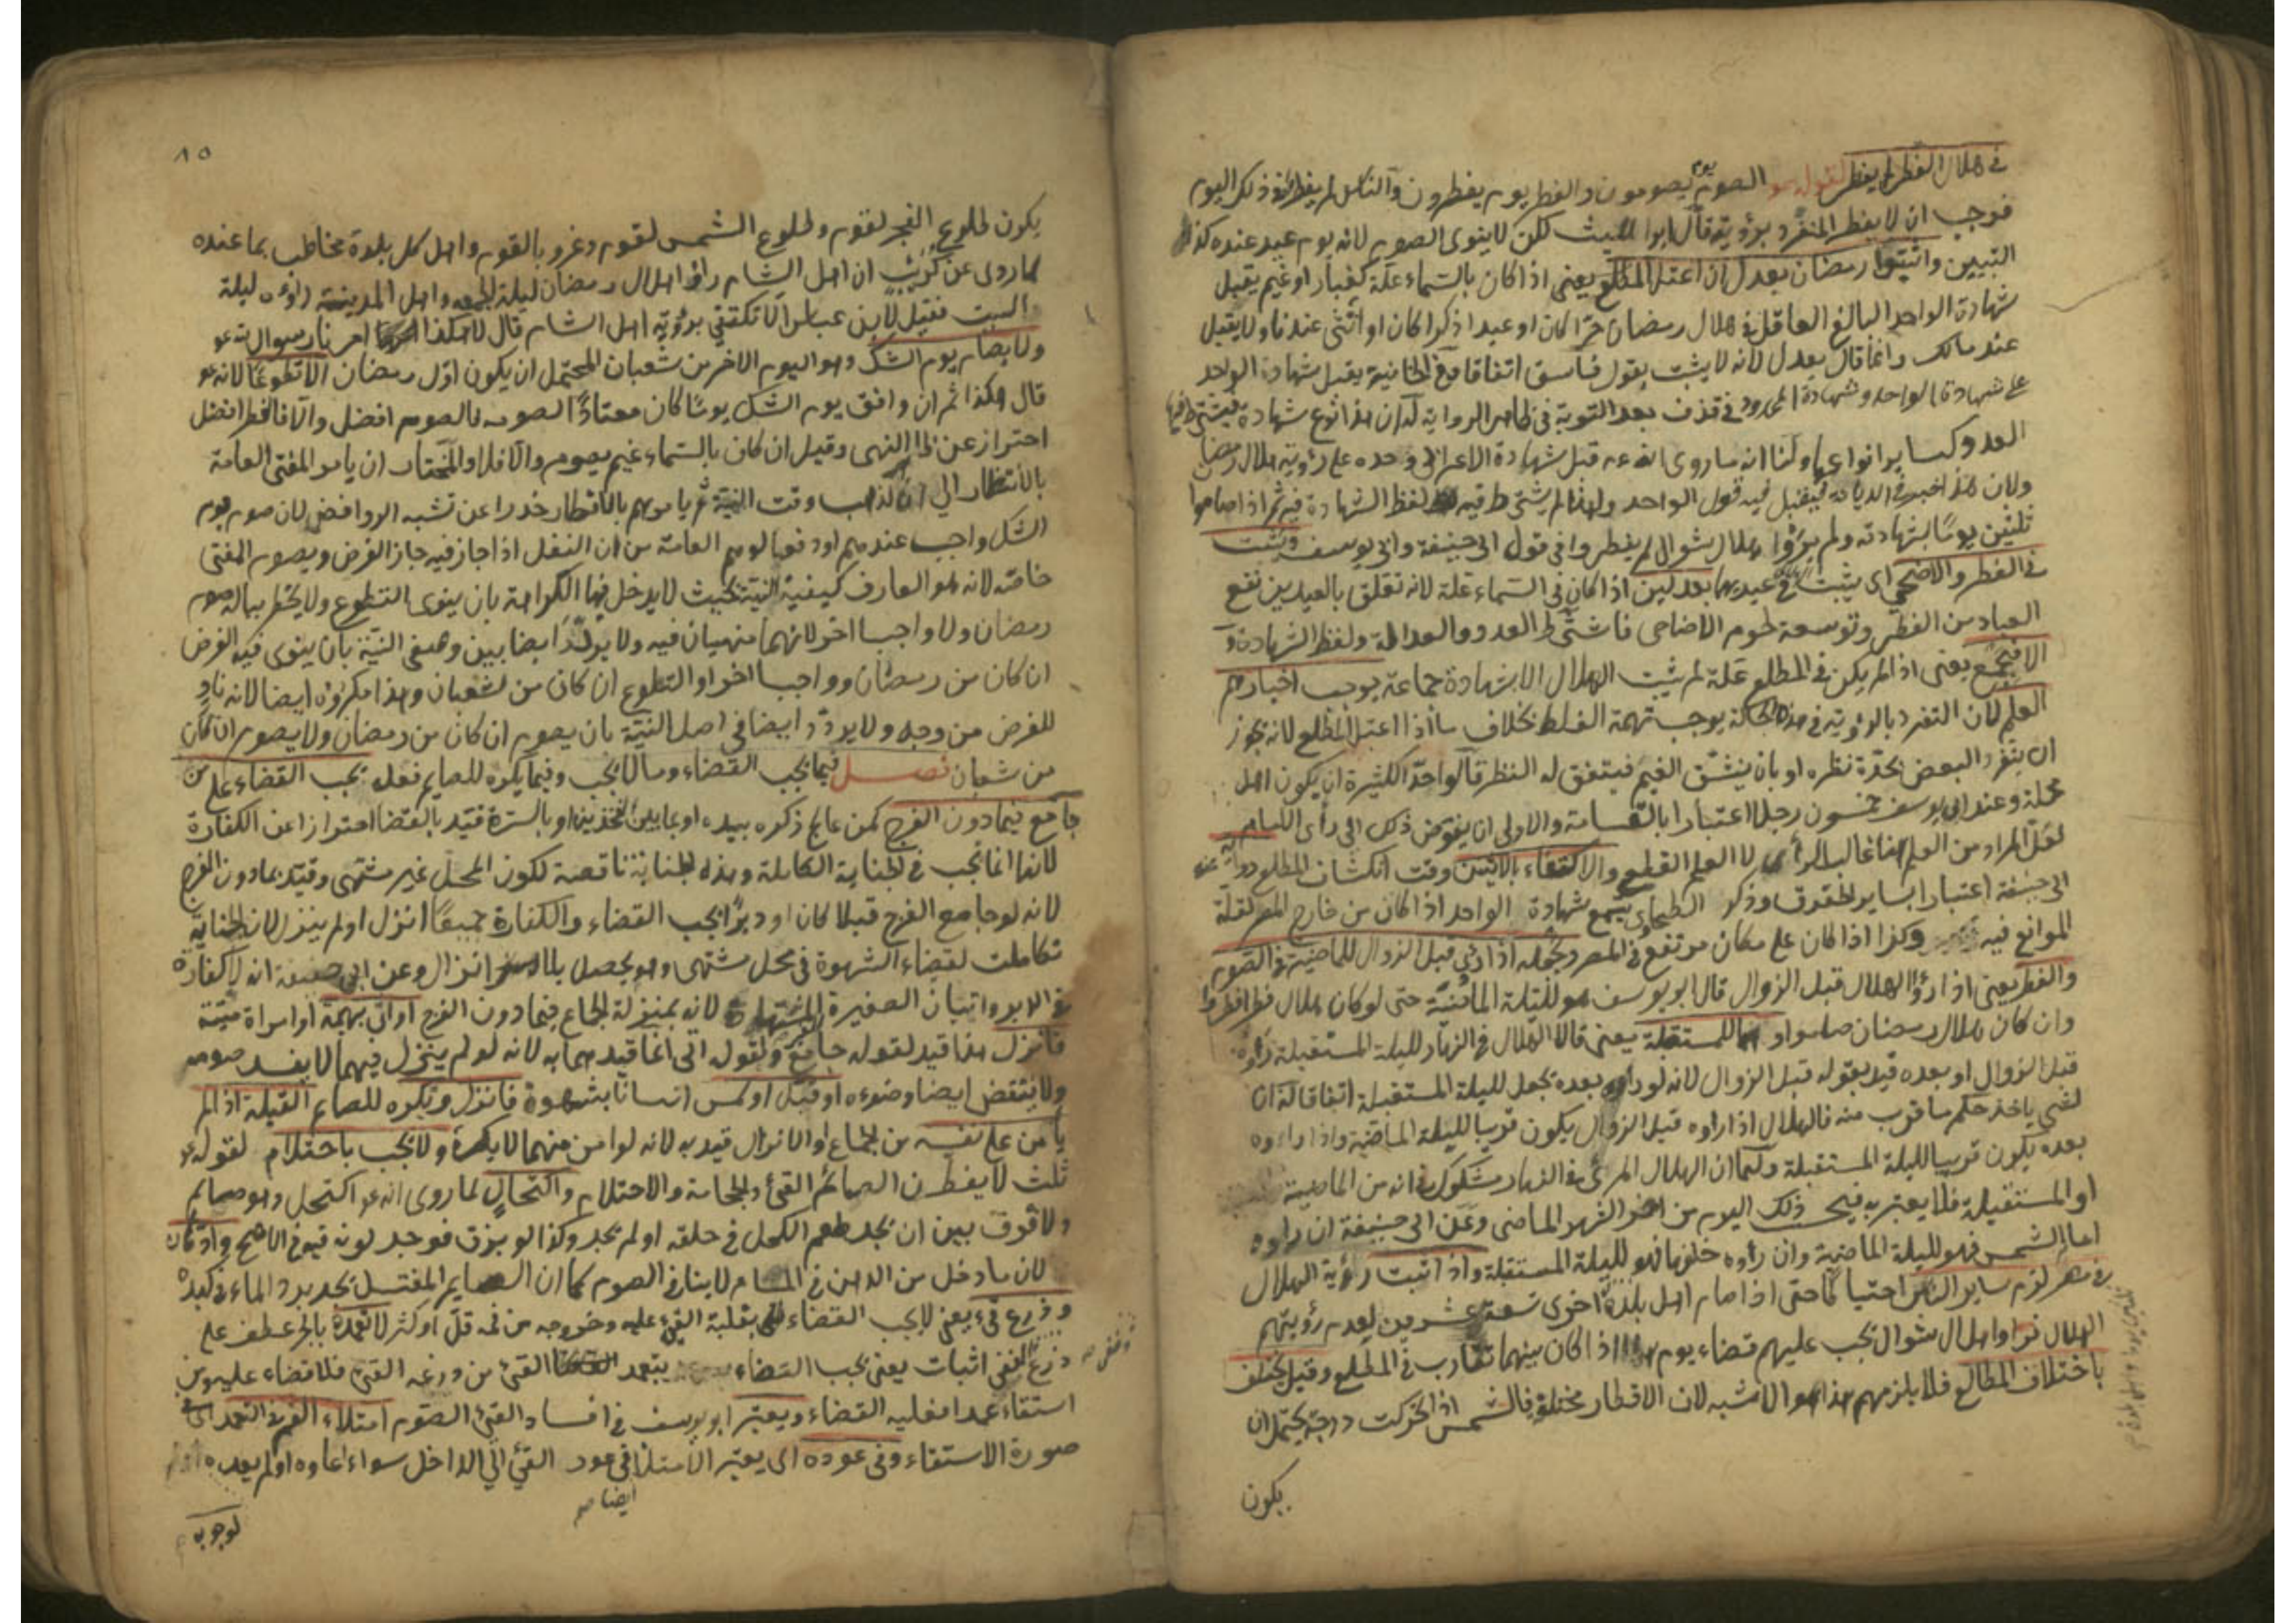 في هلال الفطر لم يفطر لقوله عم الصوم يوم يصومون والفطر يوم يفطرون والناس لم يفطروا في ذلك اليوم
فوجب ان لا يفطر المنفرد برؤيته قال ابو الليث لكن لا ينوى الصوم لانه يوم عيد عنده كذا في
التبيين واثبتوا رمضان بعدل ان اعتل المطلع يعنى اذا كان بالسماء علة كغبار او غيم يقبل
شهادة الواحد البالغ العاقل في هلال رمضان حرا كان او عبدا ذكرا كان او انثى عندنا ولا يقبل
عند مالك وانما قال بعدل لانه لا يثبت بقول فاسق اتفاقا وفي الخانية يقبل شهادة الواحد
على شهادة الواحد وشهادة المحدود في قذف بعد التوبة في ظاهر الرواية له ان هذا نوع شهادة فيشترط فيها
العدد كساير انواعها ولنا انه ما روى انه عم قبل شهادة الاعرابى وحده على رؤية هلال رمضان
ولان هذا خبر في الديانة فيقبل فيه قول الواحد ولهذا لم يشترط فيه لفظ الشهادة فيه ثم اذا صاموا
ثلثين يوما بشهادته ولم يروا هلال شوال لم يفطروا في قول ابى حنيفة وابى يوسف ويثبت
في الفطر والاضحى اى يثبت في عيديهما بعدلين اذا كان في السماء علة لانه تعلق بالعيدين نفع
العباد من الفطر وتوسعة لحوم الاضاحى فاشترط العدد والعدالة ولفظ الشهادة و
الا فبجمع يعنى اذا لم يكن في المطلع علة لم يثبت الهلال الا بشهادة جماعة يوجب اخبارهم
العلم لان التفرد بالرؤية في هذه الحالة يوجب تهمة الغلط بخلاف ما اذا اعتل المطلع لانه يجوز
ان ينفرد البعض بحدة نظره او بان ينشق الغيم فيتفق له النظر قالوا حد الكثيرة ان يكون اهل
محلة وعند ابى يوسف خمسون رجلا اعتبارا بالقسامة والاولى ان يفوض ذلك الى رأى الامام
لعل المراد من العلم هنا غالب الرأى لا العلم القطعى والاكتفاء بالاثنين وقت انكشاف المطلع رواية عن
ابى حنيفة اعتبارا بساير الحقوق وذكر الطحاوى يسمع شهادة الواحد اذا كان من خارج المصر لقلة
الموانع فيه وكذا اذا كان على مكان مرتفع في المصر وجعله اذا رئى قبل الزوال للماضية في الصوم
والفطر يعنى اذا رؤا الهلال قبل الزوال قال ابو يوسف هو لليلة الماضية حتى لو كان هلال فطر افطروا
وان كان هلال رمضان صاموا وهما للمستقبلة يعنى قالا الهلال في النهار لليلة المستقبلة رأوه
قبل الزوال او بعده قيد بقوله قبل الزوال لانه لو رأوه بعده يجعل لليلة المستقبلة اتفاقا له ان
الشئ ياخذ حكم ما قرب منه فالهلال اذا راوه قبل الزوال يكون قريبا لليلة الماضية واذا راوه
بعده يكون قريبا لليلة المستقبلة ولهما ان الهلال المرئى في النهار مشكوك في انه من الماضية
او المستقبلة فلا يعتبر به فيحسب ذلك اليوم من اخر الشهر الماضى وعن ابى حنيفة ان راوه
امام الشمس فهو لليلة الماضية وان راوه خلفها فهو لليلة المستقبلة واذا اثبت رؤية الهلال
في مصر لزم ساير الناس احتياطا حتى اذا صام اهل بلدة اخرى تسعة وعشرين لعدم رؤيتهم
الهلال فراوا هلال شوال يجب عليهم قضاء يوم اذا كان بينهما تقارب في المطلع وقيل يختلف
باختلاف المطالع فلا يلزمهم هذا هو الاشبه لان الاقطار مختلفة فالشمس اذا تحركت درجة يحتمل ان
يكون
٨٥
يكون طلوع الفجر لقوم وطلوع الشمس لقوم وغروبا لقوم واهل كل بلدة مخاطب بما عنده
كما روى عن كريب ان اهل الشام راوا هلال رمضان ليلة الجمعة واهل المدينة راوه ليلة
السبت فقيل لابن عباس الا تكتفى برؤية اهل الشام قال لا هكذا امرنا رسول الله عم
ولا يصام يوم الشك وهو اليوم الاخر من شعبان المحتمل ان يكون اول رمضان الا تطوعا لانه عم
قال هكذا ثم ان وافق يوم الشك يوما كان معتادا لصومه فالصوم افضل والا فالفطر افضل
احتراز عن ظاهر النهى وقيل ان كان بالسماء غيم يصوم والا فلا والمختار ان يامر المفتى العامة
بالانتظار الى ان يذهب وقت النية ثم يامرهم بالافطار حذرا عن تشبه الروافض لان صوم يوم
الشك واجب عندهم او دفعا لوهم العامة من ان النفل اذا جاز فيه جاز الفرض ويصوم المفتى
خاصة لانه هو العارف كيفية النية بحيث لا يدخل فيها الكراهة بان ينوى التطوع ولا يخطر بباله صوم
رمضان ولا واجبا اخر لانهما منهيان فيه ولا يردد ايضا بين وصفى النية بان ينوى فيه الفرض
ان كان من رمضان وواجبا اخر او التطوع ان كان من شعبان وهذا مكروه ايضا لانه ناو
للفرض من وجه ولا يردد ايضا في اصل النية بان يصوم ان كان من رمضان ولا يصوم ان كان
من شعبان فصل فيما يجب القضاء وما لا يجب وفيما يكره للصايم فعله يجب القضاء على من
جامع فيما دون الفرج كمن عالج ذكره بيده او بما بين الفخذين او بالسرة قيد بالقضا احترازا عن الكفارة
لانها انما تجب في الجناية الكاملة وهذه الجناية ناقصة لكون المحل غير مشتهى وقيد بما دون الفرج
لانه لو جامع الفرج قبلا كان او دبرا يجب القضاء والكفارة جميعا انزل او لم ينزل لان الجناية
تكاملت لقضاء الشهوة في محل مشتهى وهو يحصل بلا انزال وعن ابى حنيفة انه لا كفارة
في الدبر واتيان الصغيرة لانه بمنزلة الجماع فيما دون الفرج او اتى بهيمة او امراة ميتة
فانزل هذا قيد لقوله جامع ولقوله اتى انما قيدهما به لانه لو لم ينزل فيهما لا يفسد صومه
ولا ينتقض ايضا وضوءه او قبل او لمس انسانا بشهوة فانزل وتكره للصايم القبلة اذا لم
يأمن على نفسه من الجماع او الانزال قيد به لانه لو امن منهما لا يكره ولا يجب باحتلام لقوله عم
ثلث لا يفطرن الصائم القئ والحجامة والاحتلام واكتحال لما روى انه عم اكتحل وهو صايم
ولا فرق بين ان يجد طعم الكحل في حلقه او لم يجد وكذا لو بزق فوجد لونه فيه في الاصح وادهان
لان ما دخل من الدهن في المسام لا ينافى الصوم كما ان الصايم المغتسل يجد برد الماء في كبده
وذرع قئ يعنى لا يجب القضاء بغلبة القئ عليه وخروجه من فمه قل او كثر لا تعمده بالجر عطف على
ذرع النفى اثبات يعنى يجب القضاء بتعمد القئ من ذرعه القئ فلا قضاء عليه ومن
استقاء عمدا فعليه القضاء ويعتبر ابو يوسف في افساد القئ الصوم امتلاء الفم في التعمد اى في
صورة الاستقاء وفي عوده اى يعتبر الامتلا في عود القئ الى الداخل سواء اعاده او لم يعده
ايضا صح
لوجوب